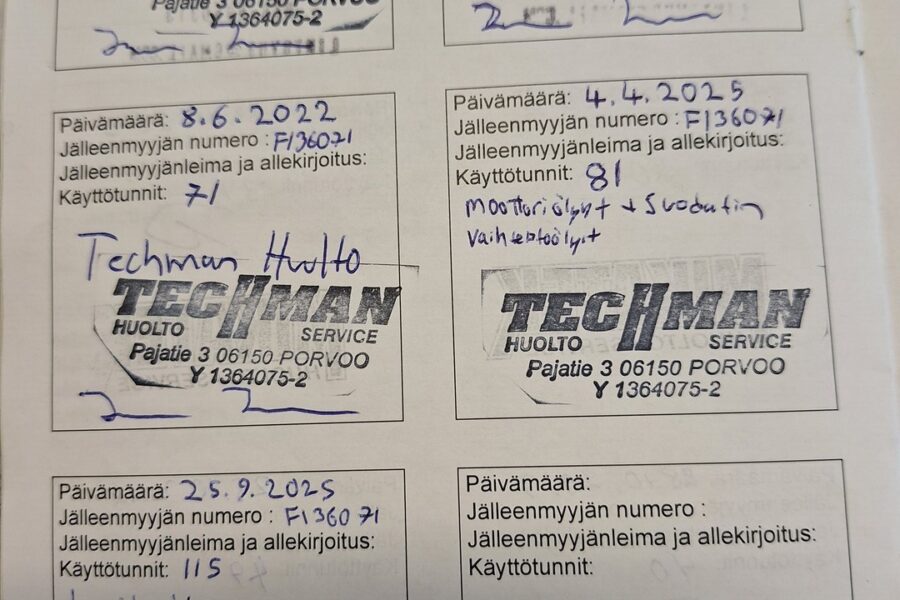 Pajatie 3 06150 PORVOO
Y 1364075-2
Päivämäärä: 8.6.2022
Jälleenmyyjän numero : FI36071
Jälleenmyyjänleima ja allekirjoitus:
Käyttötunnit: 71
Techman Huolto
TECHMAN
HUOLTO SERVICE
Pajatie 3 06150 PORVOO
Y 1364075-2
Päivämäärä: 4.4.2025
Jälleenmyyjän numero : FI36071
Jälleenmyyjänleima ja allekirjoitus:
Käyttötunnit: 81
Moottoriöljyt + Suodatin
Vaihteistoöljyt
TECHMAN
HUOLTO SERVICE
Pajatie 3 06150 PORVOO
Y 1364075-2
Päivämäärä: 25.9.2025
Jälleenmyyjän numero : FI36071
Jälleenmyyjänleima ja allekirjoitus:
Käyttötunnit: 115
Päivämäärä:
Jälleenmyyjän numero :
Jälleenmyyjänleima ja allekirjoitus:
Käyttötunnit: